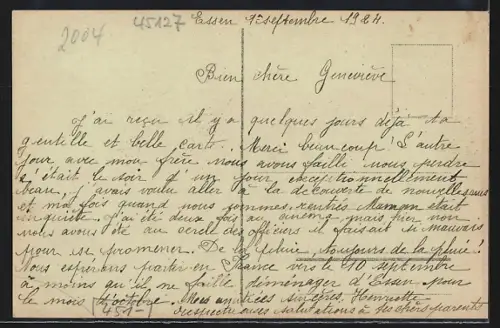 2004
45127
Essen 1er septembre 1924.
Bien chère Geneviève
J'ai reçu il y a quelques jours déjà ta
gentille et belle carte. Merci beaucoup! L'autre
jour avec mon frère nous avons failli nous perdre
c'était le soir d'un jour, exceptionnellement
beau, j'avais voulu aller à la découverte de nouvelles rues
et ma fois quand nous sommes rentrés Maman était
inquiète. J'ai été deux fois au cinéma mais hier non
nous avons été au cercle des officiers il faisait si mauvais
pour se promener. De la pluie, toujours de la pluie!
Nous espérons partir en France vers le 10 septembre
à moins qu'il ne faille déménager d'Essen pour
le mois d'octobre. Mes amitiés sincères, Henriette
respectueuses salutations à tes chers parents
451-1